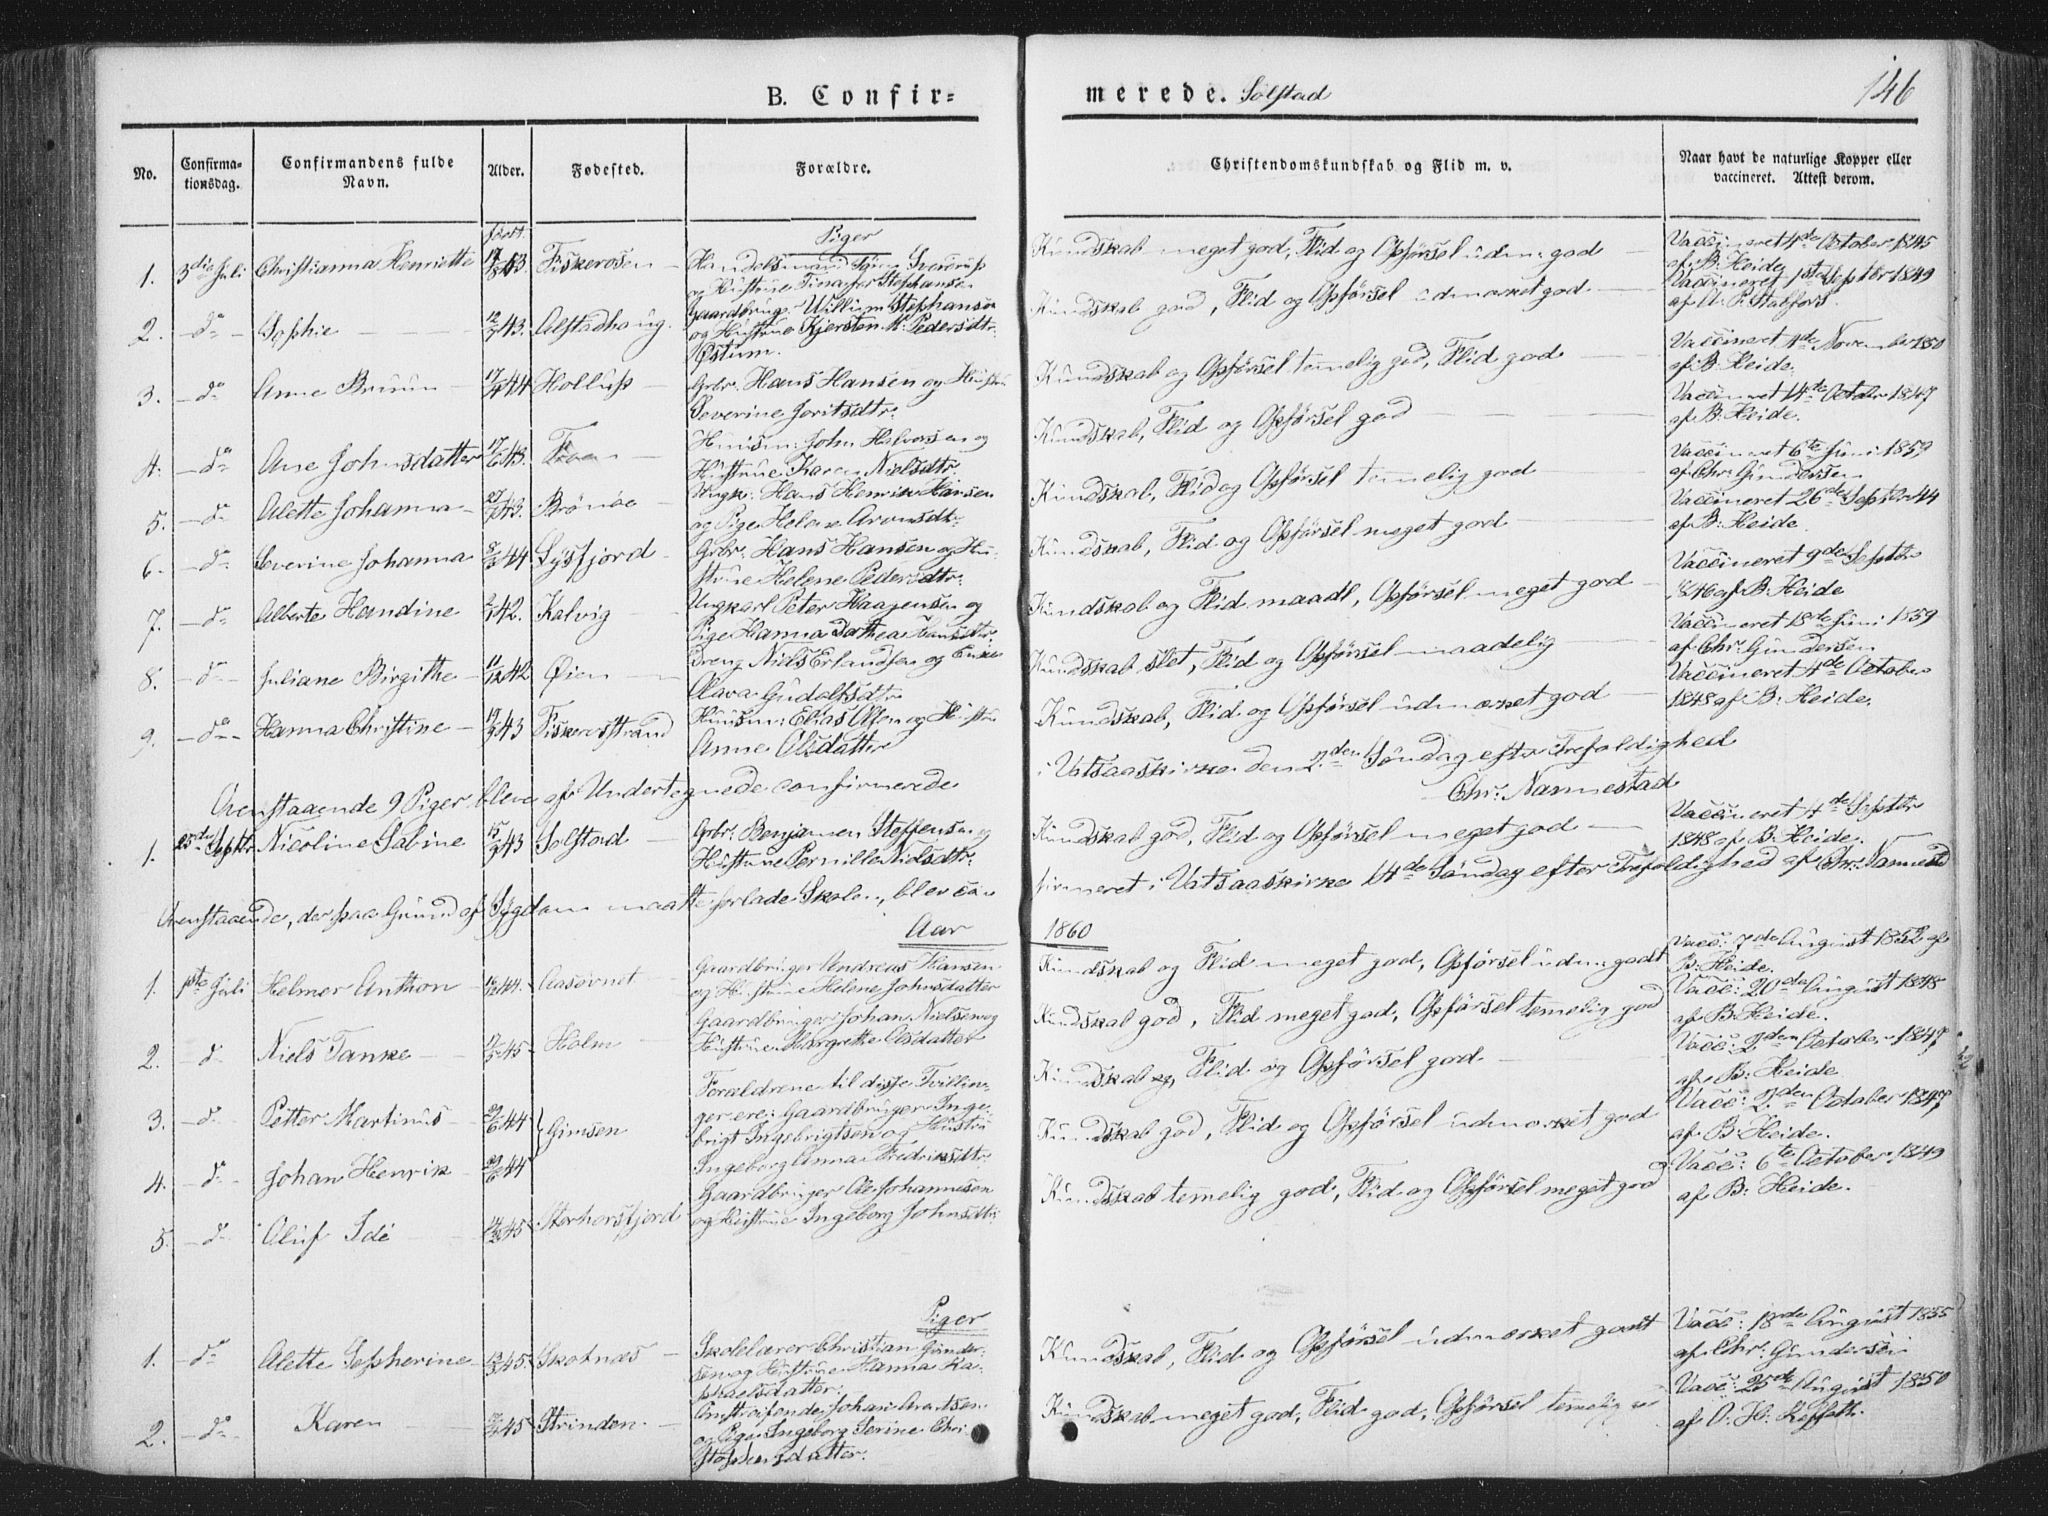 B. Confir=
merede. Solstad
146
No.
Confirma-
tionsdag.
Confirmandens fulde
Navn.
Alder.
Fødested.
Forældre.
Christendomskundskab og Flid m. v.
Naar havt de naturlige Kopper eller
vaccineret. Attest derom.
født.
Piger
1. 3die Juli Christianna Henriette 43. Fiskerosen
Kundskab meget god, Flid og Opførsel udm: god
Vaccineret 4de October 1845
af B. Heide
2. do Sophie 43. Alstadhoug.
Gaardbrug: Willum Stephansen
og Hustrue Kjersten M. Pedersdtr.
Kundskab god, Flid og Opførsel udmærket god
Vaccineret 1ste Septbr 1849
3. do Anne Bruun 44 Hollup
Grbr. Hans Hansen og Hustru
Severine Joritsdtr.
Kundskab og Opførsel temelig god, Flid god
Vaccineret 4de November 1850
af B. Heide.
4. do Ane Johnsdatter 43.
Huusm: John Halvorsen og
Hustrue Karen Nielsdtr.
Kundskab, Flid og Opførsel god
Vaccineret 14de October 1847
af B. Heide.
5. do Alette Johanna 43. Brønøe
Ungk: Hans Henrik Hansen
og Pige Helene Aronsdtr.
Kundskab, Flid og Opførsel temelig god
Vaccineret 6te Juni 1859
af Chr. Gundersen
6. do Severine Johanna 44 Lysfjord
Grbr. Hans Hansen og Hu-
strue Helene Pedersdtr.
Kundskab, Flid og Opførsel meget god
Vaccineret 26de Septbr 44
af B. Heide.
7. do Alberte Handine 42. Kalvig
Ungkarl Peter Haagensen og
Pige Hanna Dorthea Hansdtr.
Kundskab og Flid maadl, Opførsel meget god
Vaccineret 9de Septbr
1846 af B. Heide
8. do Juliane Birgithe 42 Øien
Dreng Niels Erlandsen og Enke
Olava Gudolksdtr
Kundskab slet, Flid og Opførsel maadelig
Vaccineret 18de Juni 1859
af Chr. Gundersen
9. do Hanna Christine 43 Fiskerosstrand
Huusm: Elias Olsen og Hustru
Anne Olsdatter
Kundskab, Flid og Opførsel udmærket god
Vaccineret 4de October
1848 af B. Heide.
Ovenstaaende 9 Piger bleve af Undertegnede confirmerede
i Vatsaaskirke den 2den Søndag efter Trefoldighed
Chr. Nannestad
1. 25de Septbr Nicoline Sabine 43 Solstad
Grbr. Benjamen Steffensen og
Hustrue Pernille Nielsdtr.
Kundskab god, Flid og Opførsel meget god
Vaccineret 4de Septbr
1848 af B. Heide.
Ovenstaaende, der paa Grund af Sygdom maatte forlade Skolen, blev con-
firmeret i Vatsaaskirke 14de Søndag efter Trefoldighed af Chr. Nannestd
Aar 1860
1. 1ste Juli Helmer Anthon 44. Aasøvnet
Gaardbruger Andreas Hansen
og Hustrue Helene Johnsdatter
Kundskab og Flid meget god, Opførsel udm: godt
Vacc: 7de August 1852 af
B. Heide.
2. do Niels Tanke 45 Holm
Gaardbruger Johan Nielsen og
Hustrue Margrethe Olsdatter
Kundskab god, Flid meget god, Opførsel temelig god
Vacc: 20de August 1848
af B. Heide.
3. do Petter Martinus 44 Gimsen
Forældrene til disse Tvillin-
ger ere: Gaardbruger Inge-
brigt Ingebrigtsen og Hustru
Ingeborg Anna Fredriksdtr.
Kundskab og, Flid og Opførsel god
Vacc: 2den October 1847
af B. Heide
4. do Johan Henrik 44
Kundskab god, Flid og Opførsel udmærket god
Vacc: 2den October 1847
af B. Heide.
5. do Oluf Idé 45 Storhorsfjord
Gaardbruger Ole Johannesen
og Hustrue Ingeborg Johnsdtr
Kundskab temelig god, Flid og Opførsel meget god
Vacc: 6te October 1849
af B. Heide.
Piger
1. do Alette Sepherine 45 Skotnæs
Skolelærer Christian Gunder-
sen og Hustrue Hanna Ra-
phaelsdatter.
Kundskab, Flid og Opførsel udmærket godt
Vacc: 18de August 1855
af Chr. Gundersen
2. do Karen 45 Strinden
Omstreifende Johan Arntsen
og Pige Ingeborg Serine Chri-
stophersdatter.
Kundskab meget god, Flid god, Opførsel temelig
Vacc: 25de August 1850